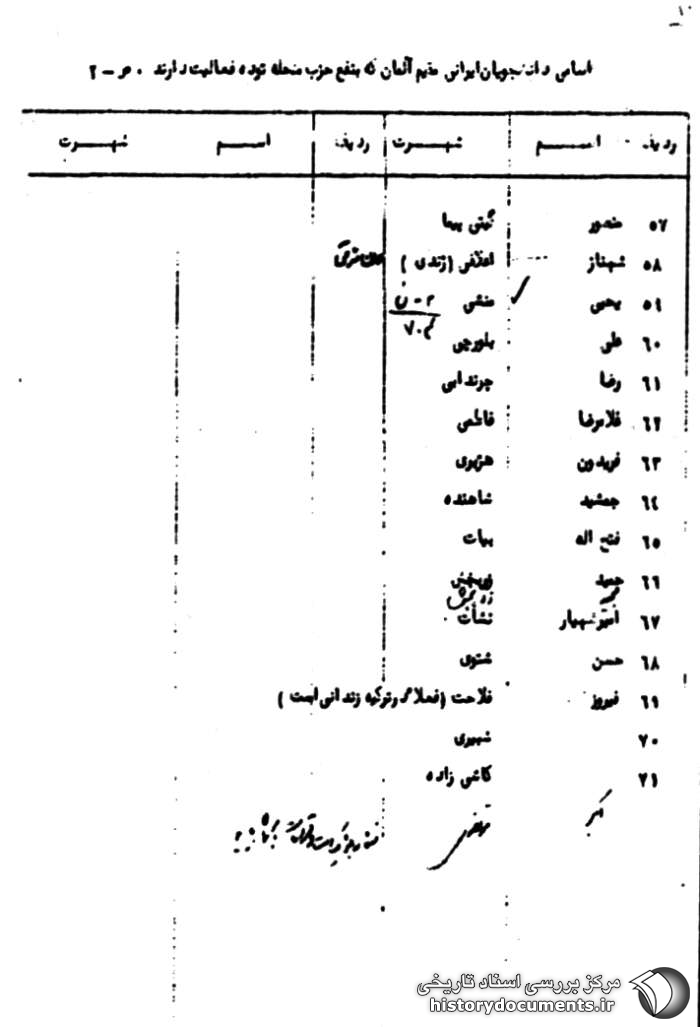 ۱۰
اسامی دانشجویان ایرانی مقیم آلمان که بنفع حزب منحله توده فعالیت دارند ۰ ص - ۲
ردیف اسم شهرت ردیف اسم شهرت
۵۷ منصور گیتی پیما
۵۸ شهناز اعلامی (زندی)
۵۹ یحیی منشی
۶۰ علی بلورچی
۶۱ رضا چرندابی
۶۲ غلامرضا فاطمی
۶۳ فریدون هژبری
۶۴ جمشید شاهنده
۶۵ فتح اله بیات
۶۶ حمید
۶۷ شهریار نشأت
۶۸ حسن
۶۹ فیروز فلاحت (فعلا در ترکیه زندانی است)
۷۰ شهیری
۷۱ کاشی زاده
اکبر
مرکز بررسی اسناد تاریخی
historydocuments.ir